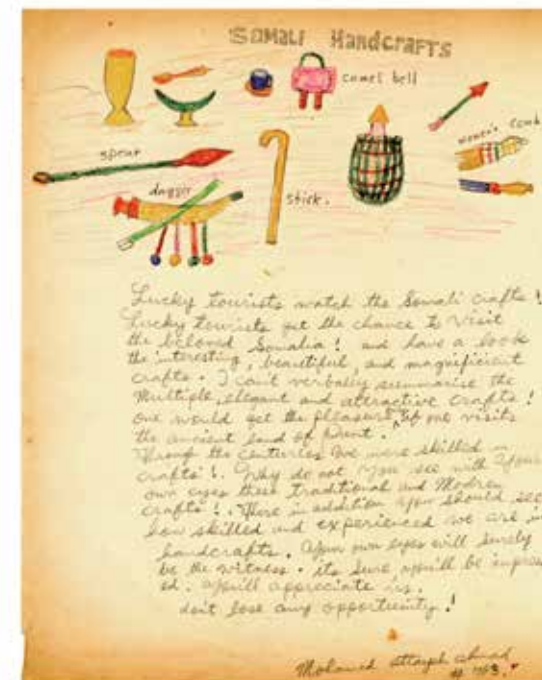 SOMALI Handcrafts
camel bell
women's comb
spear
dagger
stick.
Lucky tourists watch the Somali crafts!
Lucky tourists get the chance to visit
the beloved Somalia! and have a look
the interesting, beautiful, and magnificient
crafts. I can't verbally summarise the
Multiple, elegant and attractive crafts!
one would get the pleasure, if one visits
the ancient land of Punt.
Through the centuries we were skilled in
crafts!. Why do not you see with your
own eyes these traditional and Modren
crafts!. There in addition you should see
how skilled and experienced we are in
handcrafts. Your own eyes will surely
be the witness. its sure, you'll be impress
ed. you'll appreciate
don't lose any opportunity!
Mohamed